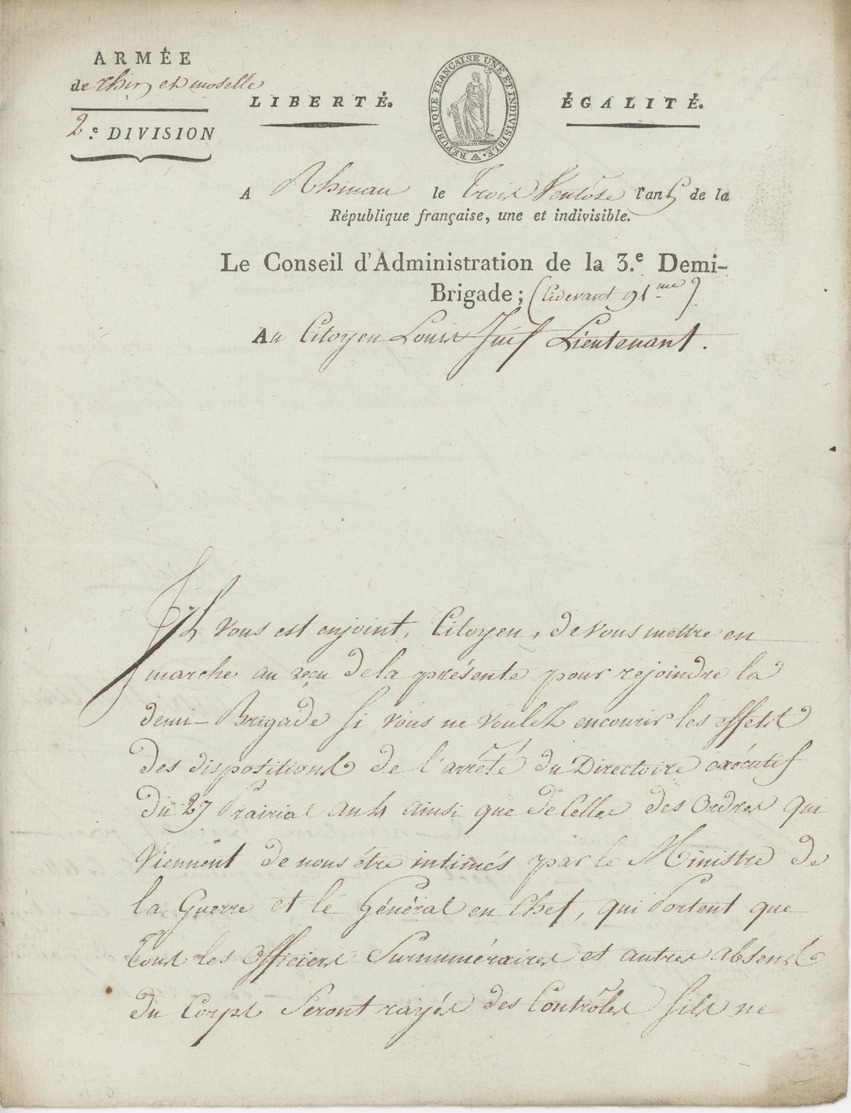 ARMÉE
de Rhin et moselle
2.e DIVISION
LIBERTÉ.
RÉPUBLIQUE FRANÇAISE UNE ET INDIVISIBLE.
ÉGALITÉ.
A Rhinau le Trois Ventôse l'an 5 de la
République française, une et indivisible.
Le Conseil d'Administration de la 3.e Demi-
Brigade; (Cidevant 91me)
Au Citoyen Louis Juif Lieutenant.
Il vous est enjoint, Citoyen, de vous mettre en
marche au reçu de la présente pour rejoindre la
demi-Brigade si vous ne voulez encourir les effets
des dispositions de l'arrêté du Directoire exécutif
du 27 Prairial an 4 ainsi que de Celles des Ordres qui
Viennent de nous être intimés par le Ministre de
la Guerre et le Général en Chef, qui Portent que
Tous les Officiers Surnuméraires et autres absents
du Corps Seront rayés des Contrôles s'ils ne